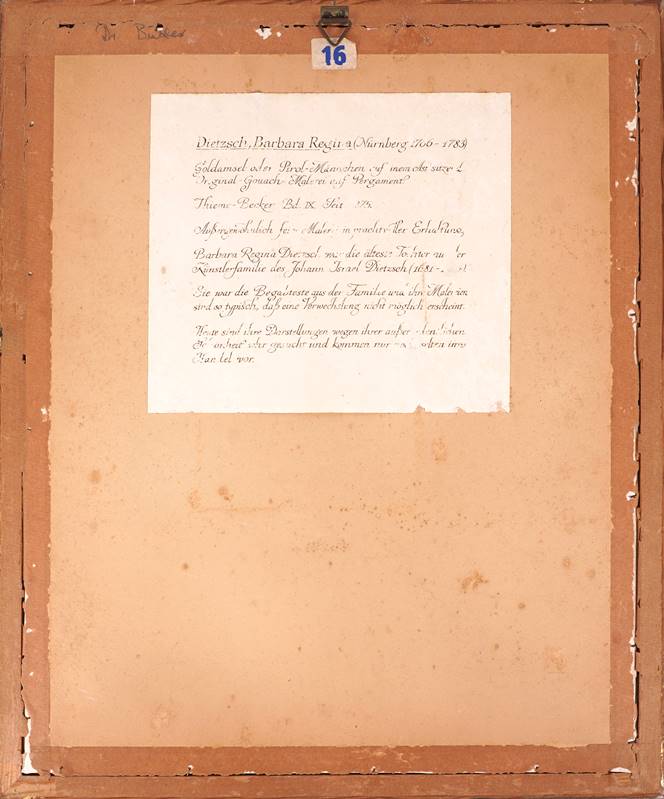 Dr. Bütler
16
Dietzsch, Barbara Regina (Nürnberg 1706 - 1783)
Goldamsel oder Pirol-Männchen auf inem Ast sitze d
Original-Gouach-Malerei auf Pergament
Thieme-Becker Bd. IX Seit 275
Außergewöhnlich fei Malerei in prachtv ller Erhaltung,
Barbara Regina Dietzsch war die älteste Tochter au der
Künstlerfamilie des Johann Israel Dietzsch (1681 -
Sie war die Begabteste aus der Familie und ihre Malereien
sind so typisch, daß eine Verwechslung nicht möglich erscheint.
Heute sind ihre Darstellungen wegen ihrer außer dentlichen
Schönheit sehr gesucht und kommen nur selten im
Handel vor.